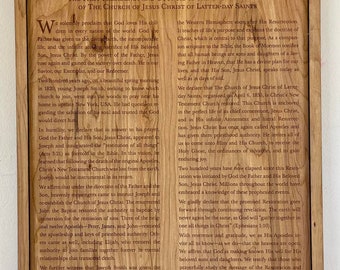 OF THE CHURCH OF JESUS CHRIST OF LATTER-DAY SAINTS
We solemnly proclaim that God loves His children in every nation of the world. God the Father has given us the divine birth, the incomparable life, and the infinite atoning sacrifice of His Beloved Son, Jesus Christ. By the power of the Father, Jesus rose again and gained the victory over death. He is our Savior, our Exemplar, and our Redeemer.
Two hundred years ago, on a beautiful spring morning in 1820, young Joseph Smith, seeking to know which church to join, went into the woods to pray near his home in upstate New York, USA. He had questions regarding the salvation of his soul and trusted that God would direct him.
In humility, we declare that in answer to his prayer, God the Father and His Son, Jesus Christ, appeared to Joseph and inaugurated the "restitution of all things" (Acts 3:21) as foretold in the Bible. In this vision, he learned that following the death of the original Apostles, Christ's New Testament Church was lost from the earth. Joseph would be instrumental in its return.
We affirm that under the direction of the Father and the Son, heavenly messengers came to instruct Joseph and re-establish the Church of Jesus Christ. The resurrected John the Baptist restored the authority to baptize by immersion for the remission of sins. Three of the original twelve Apostles—Peter, James, and John—restored the apostleship and keys of priesthood authority. Others came as well, including Elijah, who restored the authority to join families together forever in eternal relationships that transcend death.
We further witness that Joseph Smith was given the
the Western Hemisphere soon after His Resurrection. It teaches of life's purpose and explains the doctrine of Christ, which is central to that purpose. As a companion scripture to the Bible, the Book of Mormon testifies that all human beings are sons and daughters of a loving Father in Heaven, that He has a divine plan for our lives, and that His Son, Jesus Christ, speaks today as well as in days of old.
We declare that The Church of Jesus Christ of Latter-day Saints, organized on April 6, 1830, is Christ's New Testament Church restored. This Church is anchored in the perfect life of its chief cornerstone, Jesus Christ, and in His infinite Atonement and literal Resurrection. Jesus Christ has once again called Apostles and has given them priesthood authority. He invites all of us to come unto Him and His Church, to receive the Holy Ghost, the ordinances of salvation, and to gain enduring joy.
Two hundred years have now elapsed since this Restoration was initiated by God the Father and His Beloved Son, Jesus Christ. Millions throughout the world have embraced a knowledge of these prophesied events.
We gladly declare that the promised Restoration goes forward through continuing revelation. The earth will never again be the same, as God will "gather together in one all things in Christ" (Ephesians 1:10).
With reverence and gratitude, we as His Apostles invite all to know—as we do—that the heavens are open. We affirm that God is making known His will for His beloved sons and daughters. We testify that those who prayerfully study the message of the Restoration